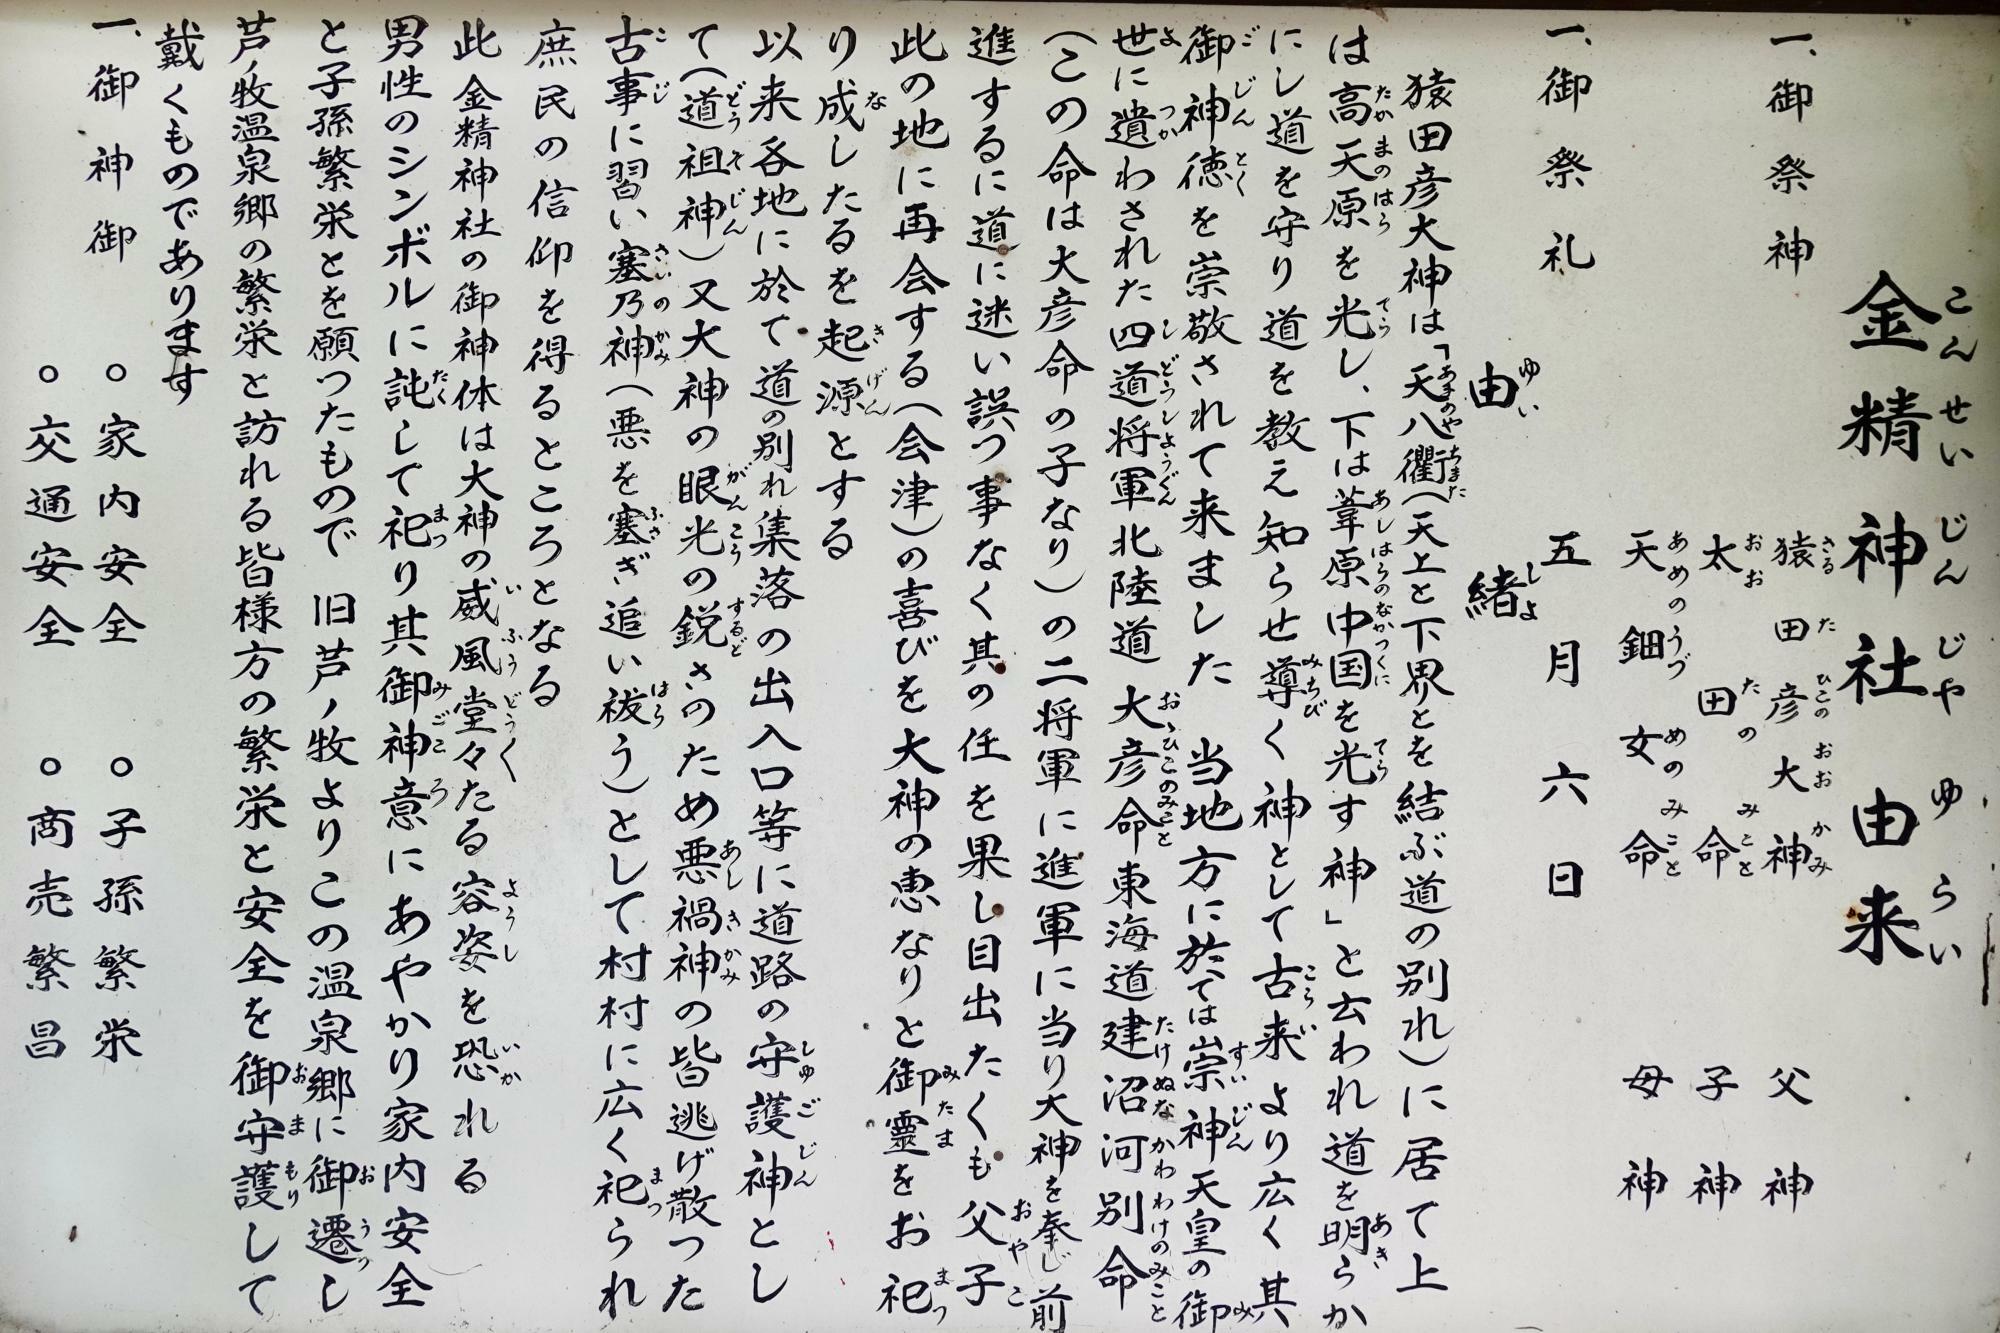 金精神社由来
一、御祭神　猿田彦大神　父神
太田命　子神
天鈿女命　母神
一、御祭礼　五月六日
由緒
猿田彦大神は「天八衢（天上と下界とを結ぶ道の別れ）に居て上
は高天原を光し、下は葦原中国を光す神」と云われ道を明らか
にし道を守り道を教え知らせ導く神として古来より広く其
御神徳を崇敬されて来ました　当地方に於ては崇神天皇の御
世に遺わされた四道将軍北陸道大彦命東海道建沼河別命
（この命は大彦命の子なり）の二将軍に進軍に当り大神を奉じ前
進するに道に迷い誤つ事なく其の任を果し目出たくも父子
此の地に再会する（会津）の喜びを大神の恵なりと御霊をお祀
り成したるを起源とする
以来各地に於て道の別れ集落の出入口等に道路の守護神とし
て（道祖神）又大神の眼光の鋭さのため悪禍神の皆逃げ散った
古事に習い塞乃神（悪を塞ぎ追い祓う）として村村に広く祀られ
庶民の信仰を得るところとなる
此金精神社の御神体は大神の威風堂々たる容姿を恐れる
男性のシンボルに託して祀り其御神意にあやかり家内安全
と子孫繁栄とを願つたもので　旧芦ノ牧よりこの温泉郷に御遷し
芦ノ牧温泉郷の繁栄と訪れる皆様方の繁栄と安全を御守護して
戴くものであります
一、御神御　○家内安全　○子孫繁栄
○交通安全　○商売繁昌